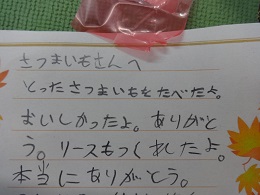 さつまいもさんへ
とったさつまいもをたべたよ。
おいしかったよ。ありがと
う。リースもつくれたよ。
本当にありがとう。